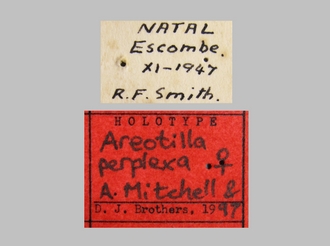 NATAL
Escombe.
XI-1947
R.F. Smith.
HOLOTYPE
Areotilla
perplexa ♀
A. Mitchell &
D. J. Brothers, 1997